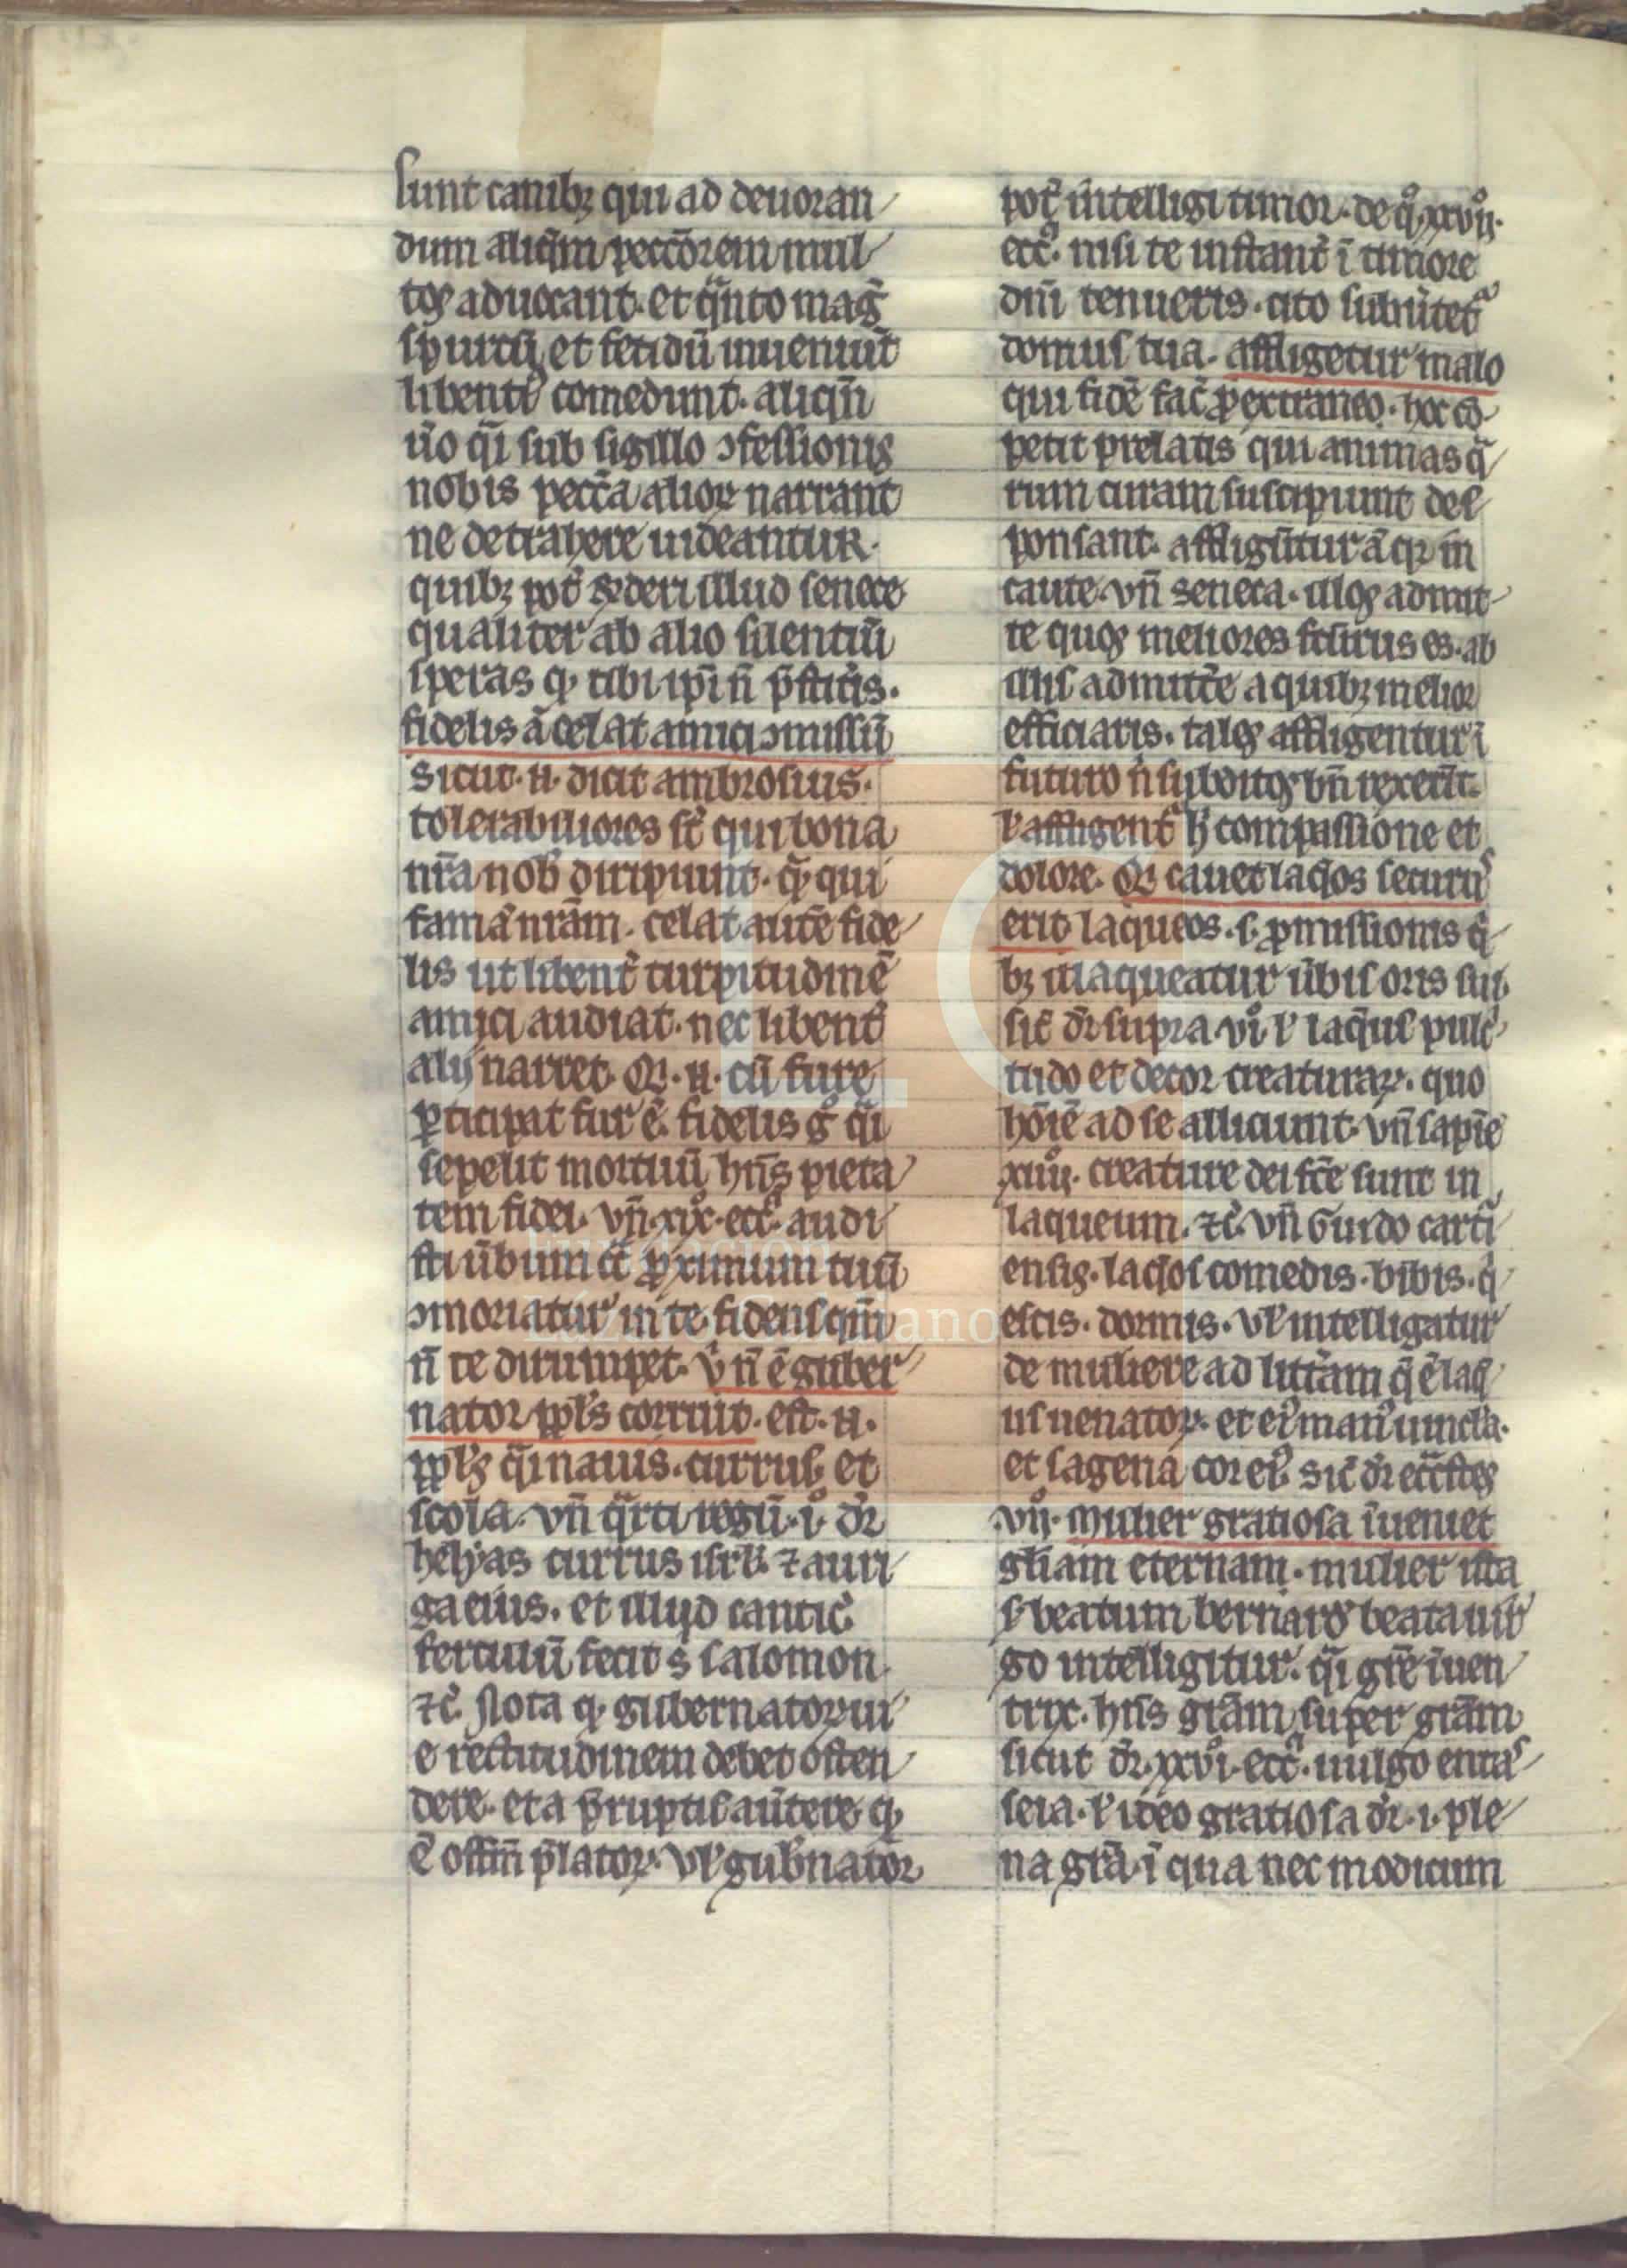 sunt canibꝫ qui ad deuoran
dum aliqͫ peccōrem mul
tos aduocant. et qͣnto magͥ
spurcū et fetidū inueniūt
libentͥ comedunt. aliqñ
ũo qͥ sub sigillo ꝯfessionis
nobis peccā alioꝝ narrant
ne detrahere uideantur.
quibꝫ pot̄ r̄deri illud senece
qualiter ab alio silentiū
speras qͩ tibi ip̄i ñ p̄stitis.
fidelis aͣ celat amici ꝯmissū
sicut .n. dicit ambrosius.
tolerabiliores sͭ qui bona
nr̄a nob̄ diripiunt. qͣ qui
famā nr̄am. celat autē fide
lis ut libent̄ turpitudinē
amici audiat. nec libent̄
alij narret. Qͥ .n. cū fure
ꝑticipat fur ē. fidelis gͦ qͥ
sepelit mortuū hn̄s pieta
tem fidei. vñ .xix. ecc̄. audi
sti ũbum cͣ ꝓximum tuū
ꝯmoriatur in te fidens qm̄
ñ te dirumpet. v̄ ñ ē guber
nator ppl̄s corruit. est .n.
ppl̄s qͣ nauis. currus et
scola. vñ qͣrti regū .i. dr̄
helyas currus isrl̄. ⁊ auri
ga eius. et illud cantic̄
ferculū fecit s̄ salomon
⁊c̄. Nota qͩ gubernatoꝝ ui
e rectitudinem debet osten
dere. et a p̄ruptis aũtere. qͩ
ē offm̄ p̄latoꝝ. vl̄ gub̄nator
pot̄ intelligi timor. de qͦ .xxvij.
ecc̄. nisi te instant̄ ī timore
dn̄i tenueris. cito subũtet̄
domus tua. affligetur malo
qui fidē fac̄ ꝓ extraneo. hoc cō
petit prelatis qui animas qͣ
rum curam suscipiunt des
ponsant. affligūtur aͣ qͥ in
caute. vñ seneca. illos admit
te quos meliores fcūrus es. ab
illis admitt̄e a quibꝫ melior
efficiaris. tales affligentur ī
futuro ñ subditos bñ rexerīt.
ł affligent̄ h̄ compassione et
dolore. Qͥ cauet laq̄os securꝰ
erit laqueos .s. ꝓmissionis qͥ
bꝫ illaqueatur ũbis oris sui.
sic̄ dr̄ supra .vi. ł laq̄us pulc̄
tudo et decor creaturaꝝ. quo
hoīē ad se alliciunt. vñ sapīe
xiiij. creature dei fcē sunt in
laqueum. ⁊c̄. vñ Guido carti
ensis. laq̄os comedis. bibis. qͥ
escis. dormis. vl̄ intelligatur
de muliere ad litt̄am q̄ ē laq̄
us uenatoꝝ. et eiꝰ manꝰ uincl̄a.
et sagena cor eiꝰ. sic̄ dr̄ eccͣstes
vij. Mulier gratiosa īueniet
gl̄iam eternam. mulier ista
s̄ beatum bernard̄ beata uir
go intelligitur. qͣ gr̄e īuen
trix. hn̄s grām super grām
sicut dr̄ .xxvi. ecc̄. mulgo entā
seia. ł ideo gratiosa dr̄ .i. ple
na grā. ī qua nec modicum